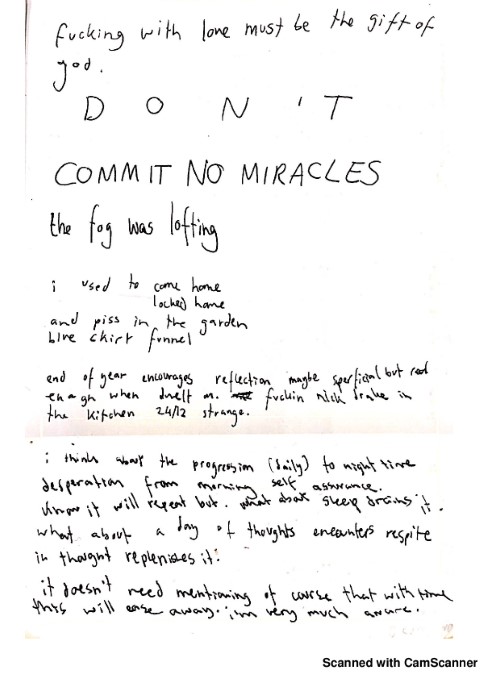 fucking with love must be the gift of
god.
D O N ' T
COMMIT NO MIRACLES
the fog was lofting
i used to come home
locked home
and piss in the garden
blue shirt funnel
end of year encourages reflection maybe sperficial but real
enough when dwelt on. fuckin Nick Drake in
the kitchen 24/12 strange.
i think about the progression (daily) to night time
desperation from morning self assurance.
know it will repeat but. what about sleep drains it.
what about a day of thoughts encounters respite
in thought replenises it.
it doesn't need mentioning of course that with time
this will ease away. i'm very much aware.
Scanned with CamScanner